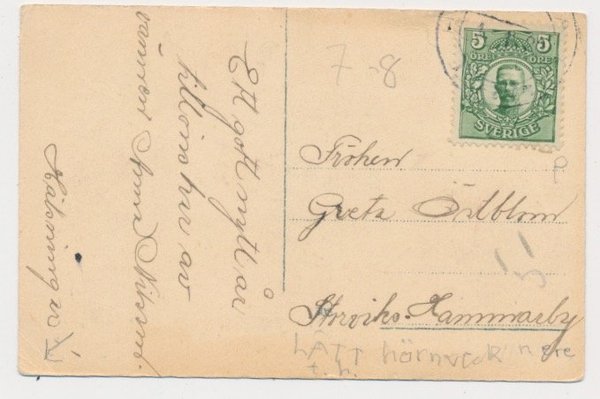 Ett gott nytt år
tillönskar av
vännen Anna Nilsson.
Hälsningar
7-8
5 5
ÖRE ÖRE
SVERIGE
Fröken
Greta Östblom
Storviks-Hammarby
LÄTT hörnveck nere
t.h.